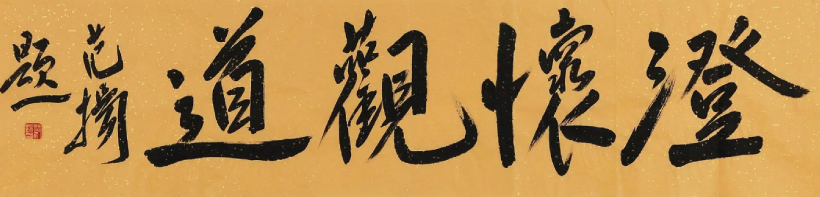 澄懷觀道
范
題